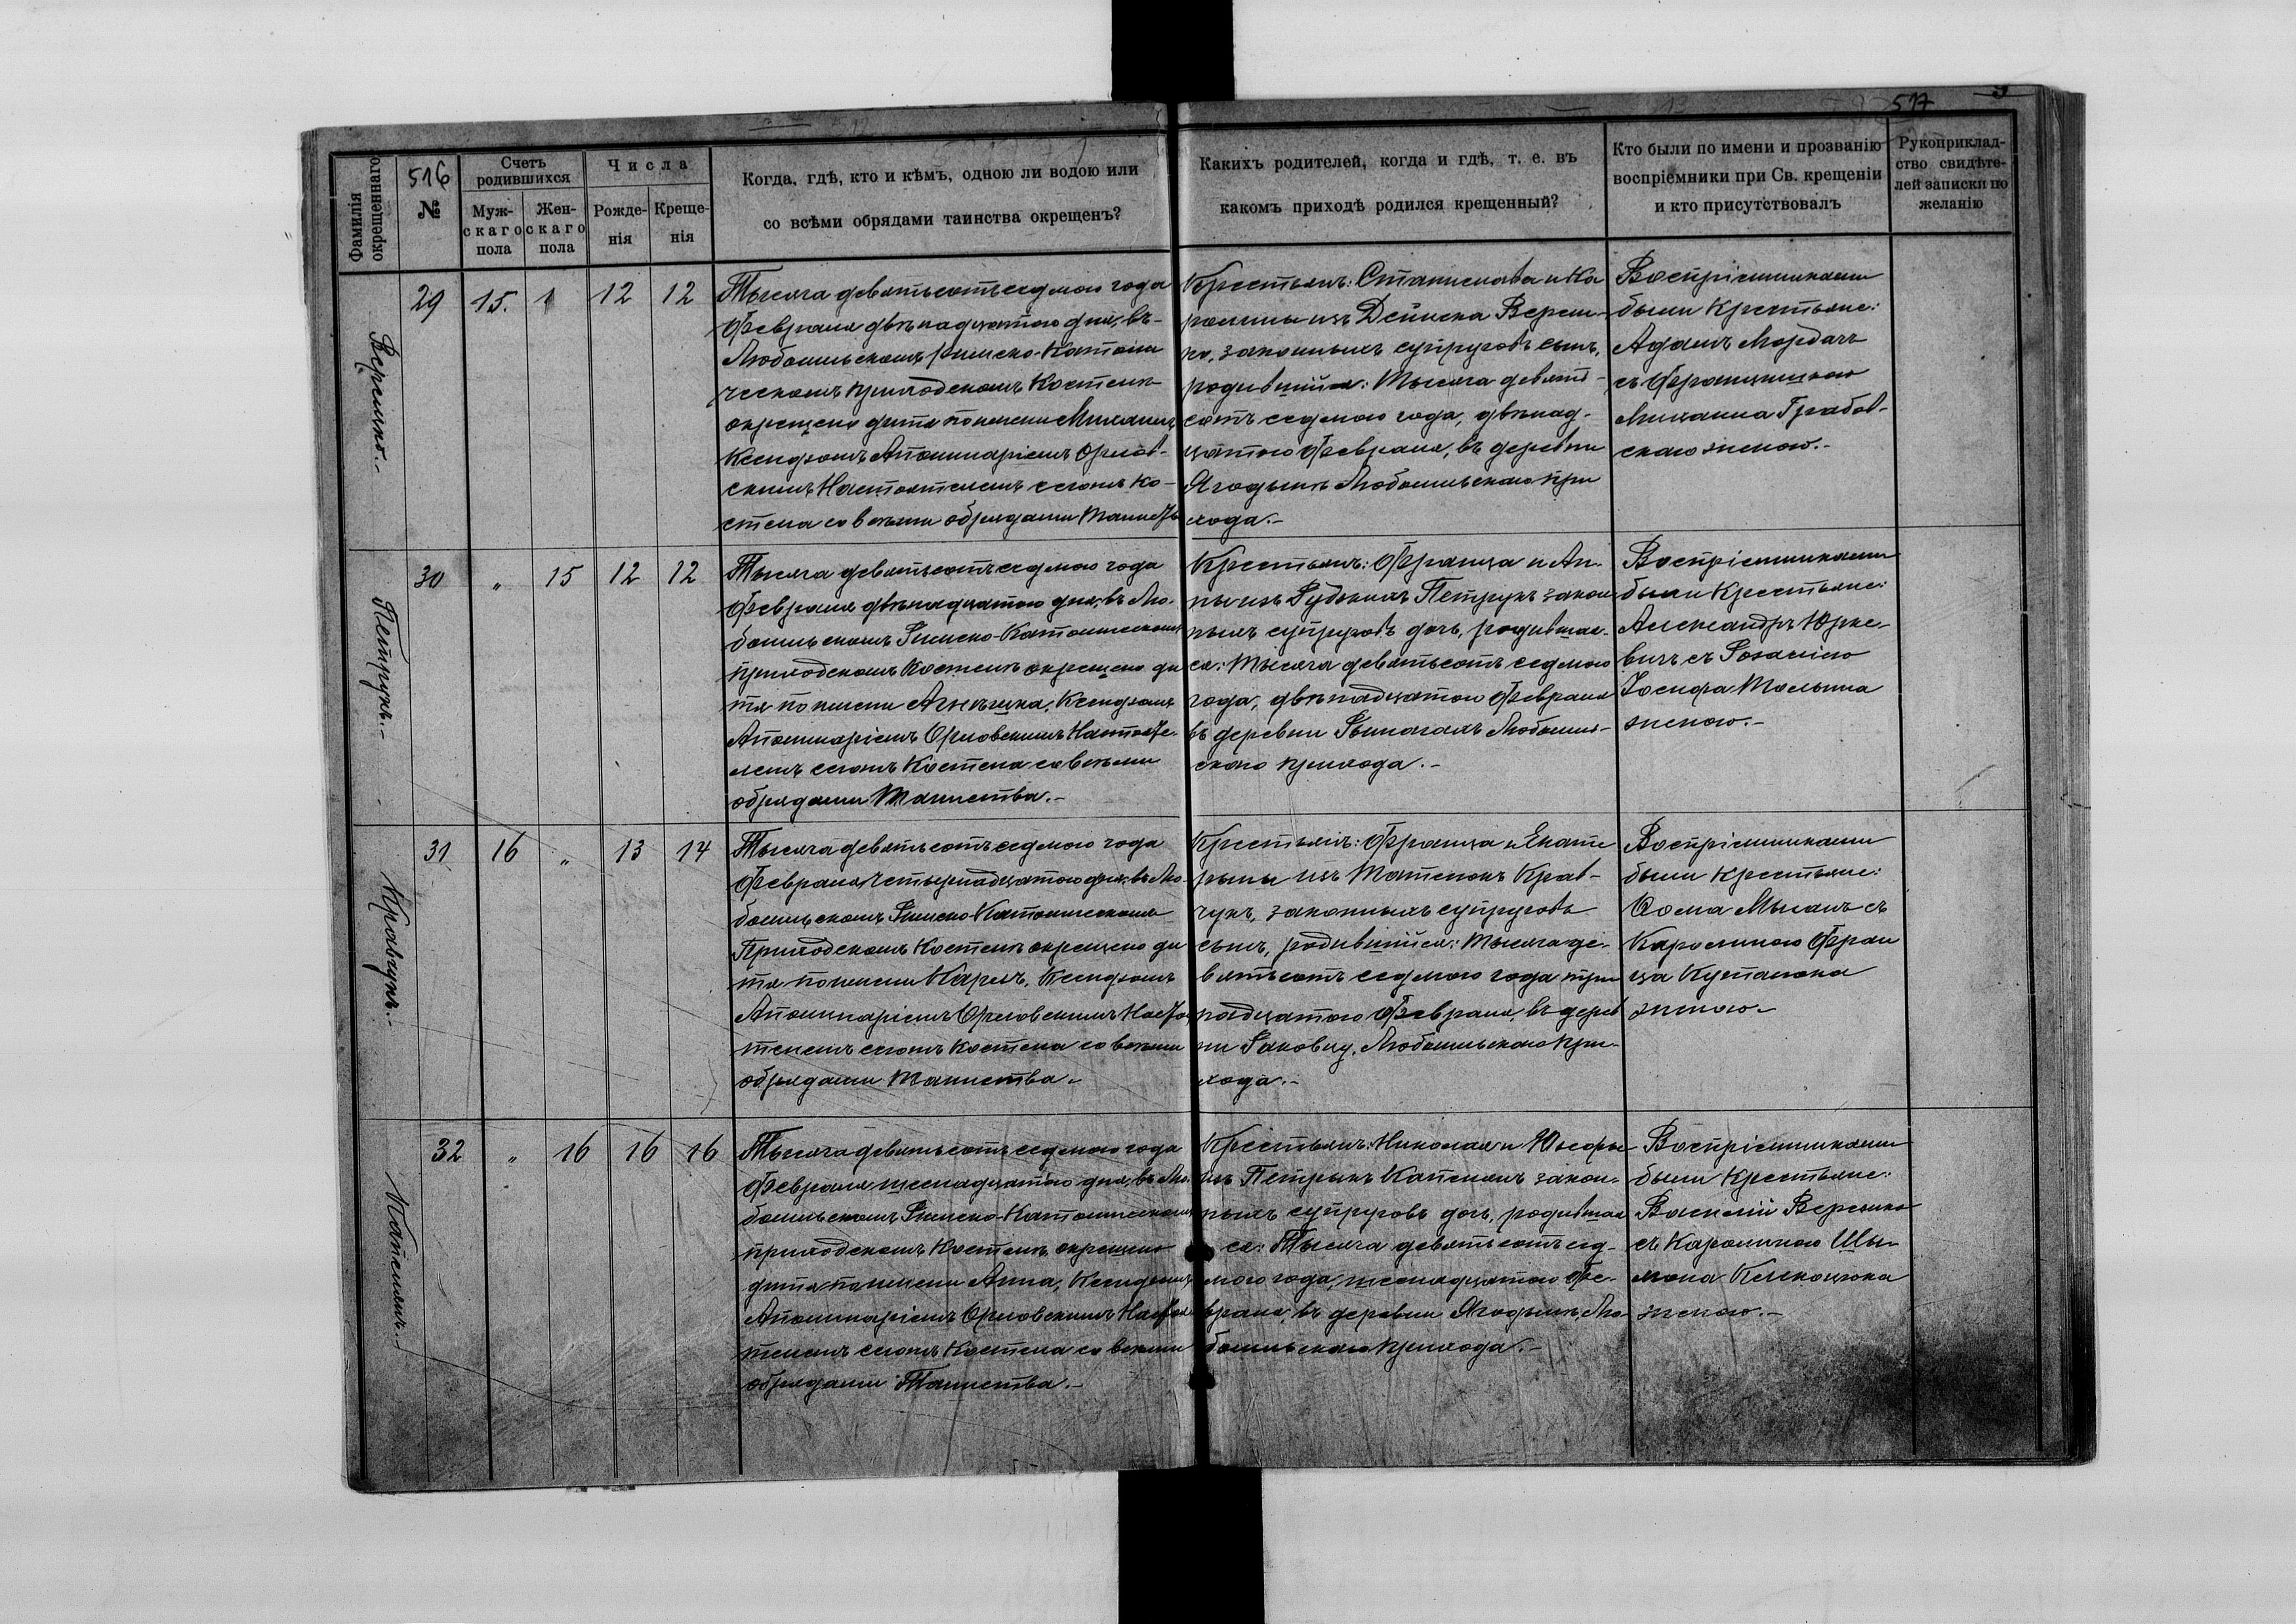 516
517
Фамилія окрещеннаго
№
Счетъ родившихся
Муж-скаго пола
Жен-скаго пола
Числа
Рожде-нія
Креще-нія
Когда, гдѣ, кто и кѣмъ, одною ли водою или
со всѣми обрядами таинства окрещенъ?
Каихъ родителей, когда и гдѣ, т. е. въ
какомъ приходѣ родился крещенный?
Кто были по имени и прозванію
воспріемники при Св. крещеніи
и кто присутствовалъ
Рукоприклад-
ство свидѣте-
лей записки по
желанію
Веремко.-
29 15. 1 12 12
Тысяча девятьсотъ седмого года
Февраля двѣнадцатого дня, въ
Любомльскомъ Римско-Католи
ческомъ приходскомъ Костелѣ
окрещено дитя по имени Михаилъ
Ксендзомъ Аполинаріемъ Орлов-
скимъ Настоятелемъ сегожъ Ко-
стела со всѣми обрядами Таинства
Крестьянъ: Станислава и Ка
ролины изъ Верем-
ко, законныхъ супруговъ сынъ,
родившійся: Тысяча девять-
сотъ седмого года, двѣнад-
цатого Февраля, въ деревни
Ягодынѣ Любомльского при
хода.-
Воспріемниками
были Крестьяне:
Адамъ
съ Францишкою
Михаила Грабов-
скаго женою.-
Петрукъ.-
30 „ 15 12 12
Тысяча девятьсотъ седмого года
Февраля двѣнадцатого дня, въ Лю-
бомльскомъ Римско-Католическомъ
приходскомъ Костелѣ окрещено ди
тя по имени Агнѣшка, Ксендзомъ
Аполинаріемъ Орловскимъ Настояте-
лемъ сегожъ Костела со всѣми
обрядами Таинства.-
Крестьянъ: Франца и Ан-
ны изъ Петрукъ закон
ныхъ супруговъ дочь, родившая-
ся: Тысяча девятьсотъ седмого
года, двѣнадцатого Февраля
въ деревни Рымачахъ Любомль-
ского прихода.-
Воспріемниками
были Крестьяне:
Александръ Юрке-
вичъ съ Розаліею
Іосифа
женою.-
Кравчукъ.-
31 16 „ 13 14
Тысяча девятьсотъ седмого года
Февраля Четырнадцатого дня, въ Лю-
бомльскомъ Римско-Католическомъ
Приходскомъ Костелѣ окрещено ди
тя по имени Карлъ, Ксендзомъ
Аполинаріемъ Орловскимъ Настоя
телемъ сегожъ Костела со всѣми
обрядами Таинства.-
Крестьянъ: Франца и Екате
рины изъ Крав-
чукъ, законныхъ супруговъ
сынъ, родившійся: Тысяча де-
вятьсотъ седмого года три
надцатого Февраля, въ дерев
ни Любомльского при-
хода.-
Воспріемниками
были Крестьяне:
Ѳома съ
Каролиною Фран
ца
женою.-
32 „ 16 16 16
Тысяча девятьсотъ седмого года
Февраля шеснадцатого дня, въ Лю-
бомльскомъ Римско-Католическомъ
приходскомъ Костелѣ окрещено
дитя по имени Анна, Ксендзомъ
Аполинаріемъ Орловскимъ Настоя
телемъ сегожъ Костела со всѣми
обрядами Таинства.-
Крестьянъ: Николая и Юзефы
изъ закон-
ныхъ супруговъ дочь, родившая
ся: Тысяча девятьсотъ сед-
мого года, шеснадцатого Фе-
враля, въ деревни Ягодынѣ, Лю-
бомльского прихода.-
Воспріемниками
были Крестьяне:
Василій Веремко
съ Каролиною Шы-
мона
женою.-